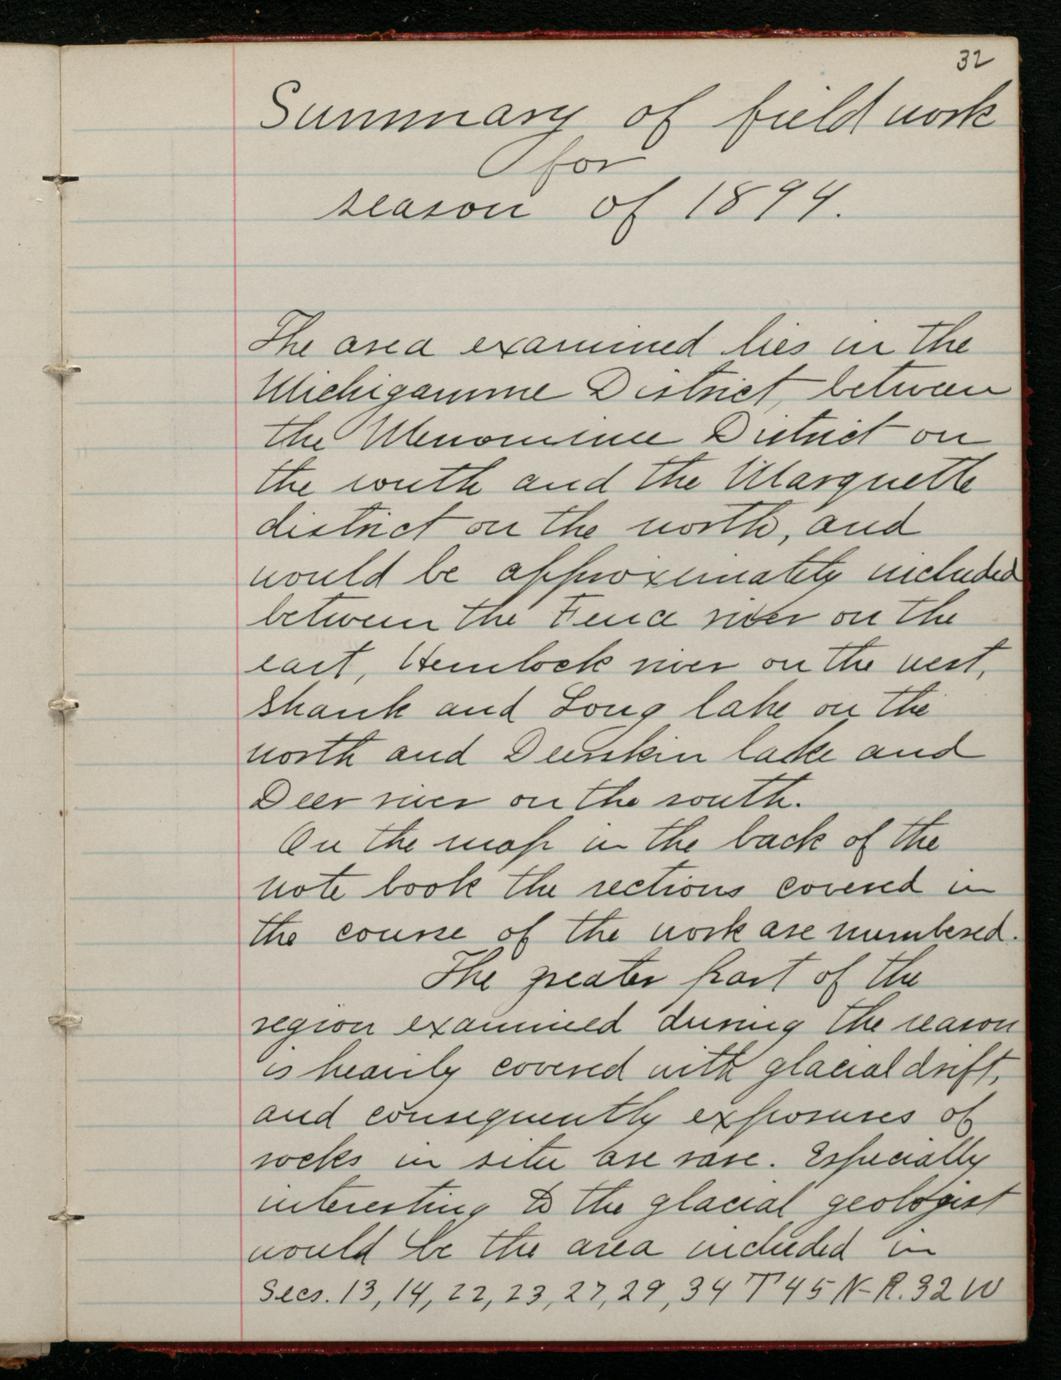 32
Summary of field work
for
season of 1894.
The area examined lies in the
Michigamme District, between
the Menominee District on
the south and the Marquette
district on the north, and
would be approximately included
between the Fence river on the
east, Hemlock river on the west,
Shank and Long lake on the
north and Dunkin lake and
Deer river on the south.
On the map in the back of the
note book the sections covered in
the course of the work are numbered.
The greater part of the
region examined during the season
is heavily covered with glacial drift,
and consequently exposures of
rocks in situ are rare. Especially
interesting to the glacial geologist
would be the area included in
Secs. 13, 14, 22, 23, 27, 29, 34 T 45 N-R. 32 W